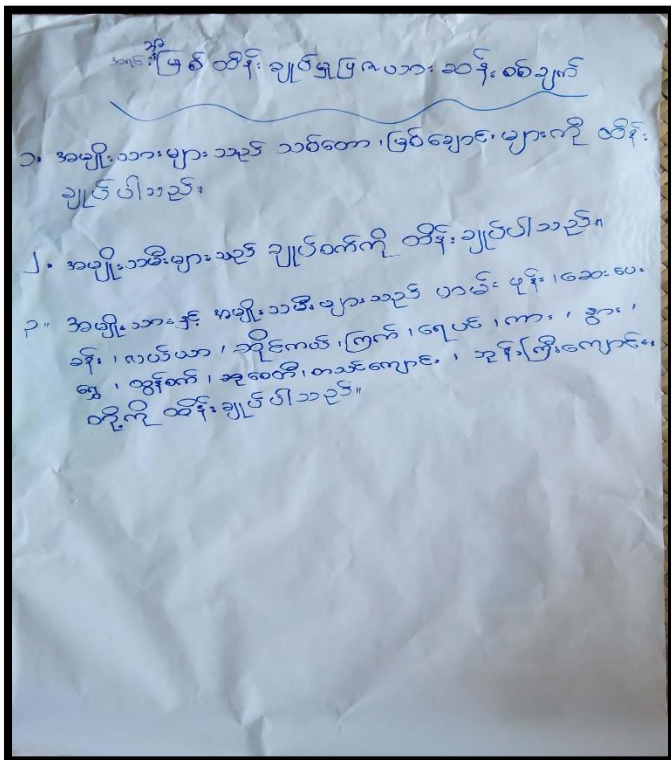 အရင်းအမြစ် ထိန်းချုပ်မှု ပြဇယား ဆန်းစစ်ချက်
၁. အမျိုးသားများသည် သစ်တော၊ မြစ်ချောင်းများကို ထိန်း
ချုပ်ပါသည်။
၂. အမျိုးသမီးများသည် ချုပ်စက်ကို ထိန်းချုပ်ပါသည်။
၃။ အမျိုးသားနှင့် အမျိုးသမီးများသည် ဖုန်း၊ ဆေးပေး
ခန်း၊ လယ်ယာ၊ ဆိုင်ကယ်၊ ကြက်၊ ရေပင်၊ ကား၊ နွား၊
ရွှေ၊ ထွန်စက်၊ စာသင်ကျောင်း၊ ဘုန်းကြီးကျောင်း
တို့ကို ထိန်းချုပ်ပါသည်။